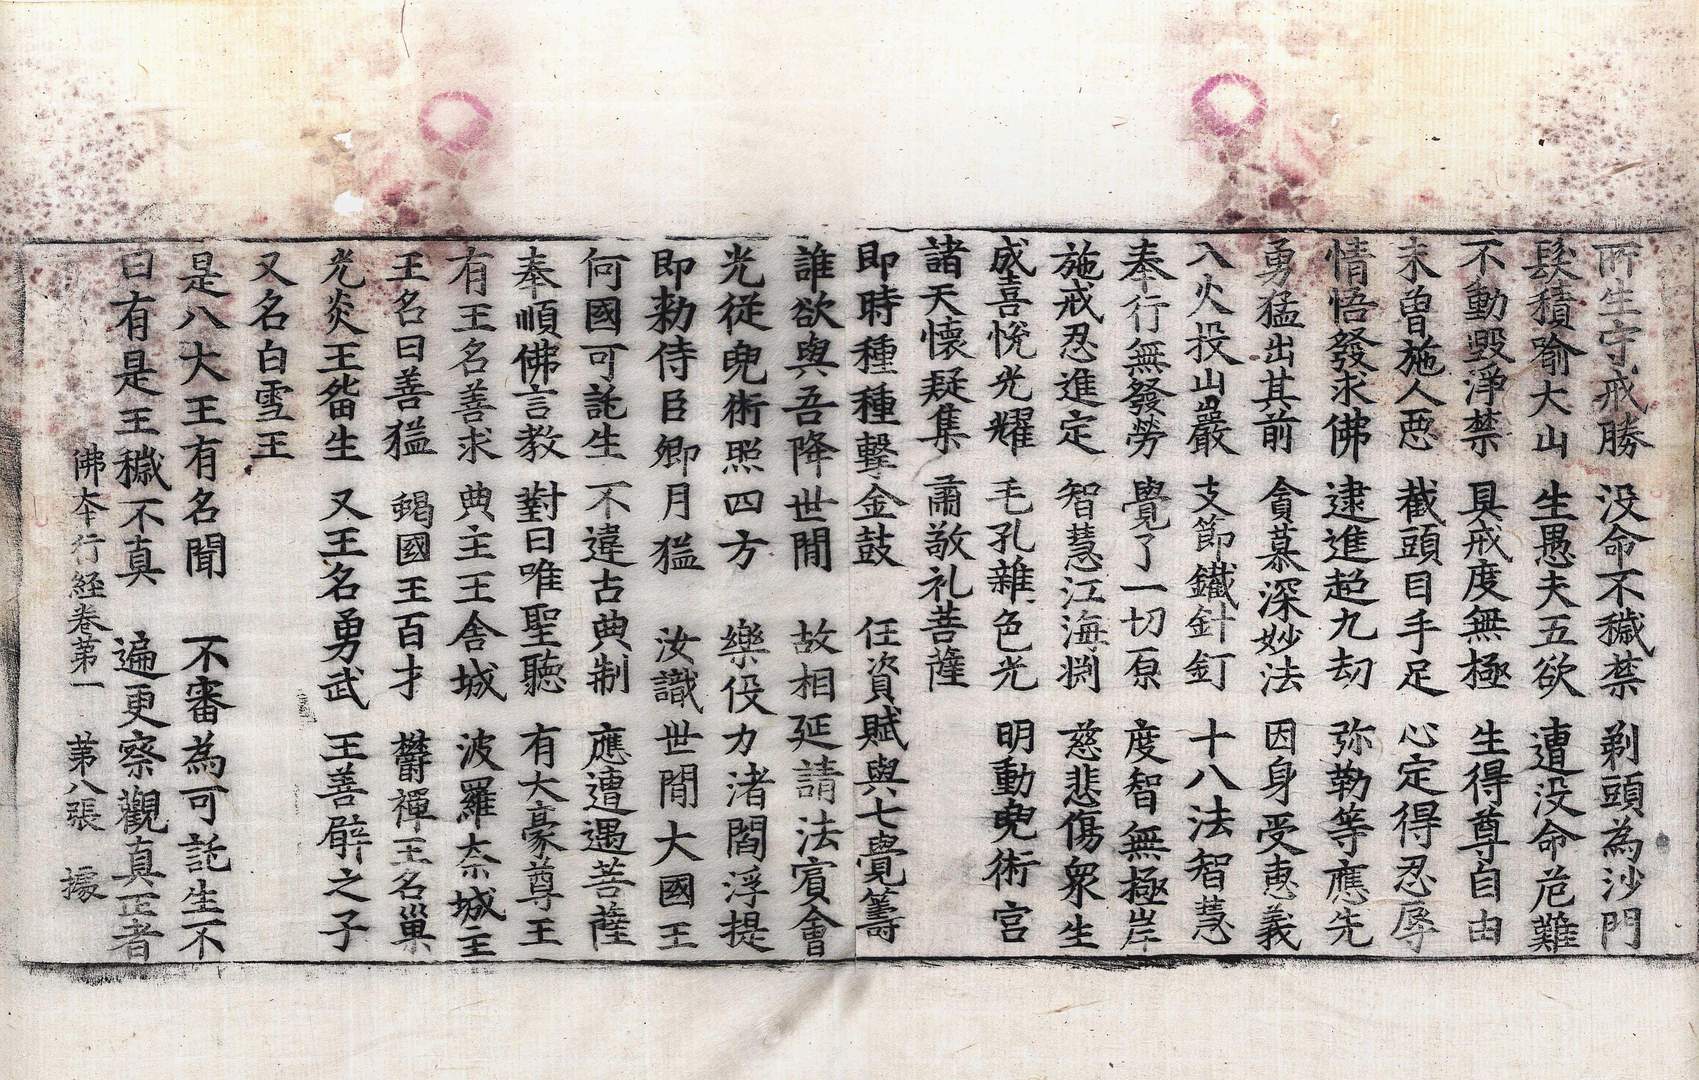 所生守戒勝　没命不穢禁　剃頭為沙門
髮積喻大山　生愚夫五欲　遭没命危難
不動毀淨禁　具戒度無極　生得尊自由
未曽施人惡　截頭目手足　心定得忍辱
情悟發求佛　逮進超九劫　弥勒等應先
勇猛出其前　貪慕深妙法　因身受恵義
入火投山巖　支節鐵針釘　十八法智慧
奉行無發勞　覺了一切原　度智無極岸
施戒忍進定　智慧江海渕　慈悲傷衆生
成喜悅光耀　毛孔雜色光　明動兜術宫
諸天懷疑集　肅敬礼菩薩
即時種種擊金鼓　任資賦與七覺籌
誰欲與吾降世間　故相延請法賔會
光從兜術照四方　樂伇力渚閻浮提
即勑侍臣卿月猛　汝識世間大國王
何國可託生　不違古典制　應遭遇菩薩
奉順佛言教　對曰唯聖聽　有大豪尊王
有王名善求　典主王舎城　波羅奈城主
王名曰善猛　蝎國王百才　欝禪王名巢
光炎王喾生　又王名勇武　王善臂之子
又名白雪王
是八大王有名聞　不審為可託生不
曰有是王穢不真　遍更察觀真正者
佛本行経卷第一　第八張　據